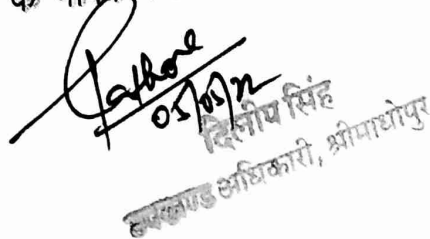 Rathore
05/05/22
दिलीप सिंह
उपखण्ड अधिकारी, श्रीमाधोपुर